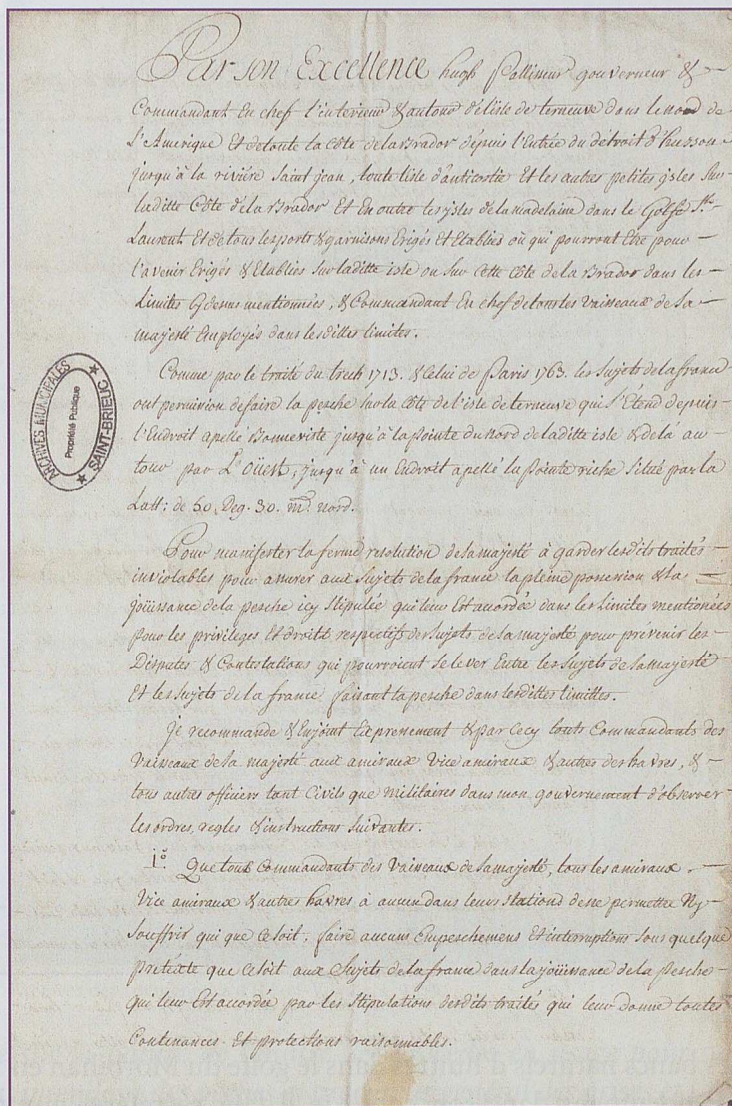 Par son Excellence hugh Palliseur gouverneur &
Commandant En chef l'interieur & autour de l'isle de terneuve dans le nord de
L'Amerique Et de toute la Côte de la Brador depuis l'Entrée du détroit d'husson
jusqu'à la rivière Saint jean, toute l'isle d'anticostie Et les autres petites isles Sur
laditte Côte de la Brador Et En outre les isles de la madelaine dans le Golfe St.
Laurent, Et de tous les ports & garnisons Erigés et Etablies où qui pourront Etre pour
l'avenir Erigés & Etablies Sur laditte isle ou Sur Cette Côte de la Brador dans les
Limites Cydessus mentionnées, & Commandant En chef de tous les Vaisseaux de Sa
majesté Employés dans lesdittes limites.
Comme par le traité du trech 1713. & Celui de Paris 1763. les Sujets de la france
ont permission de faire la pesche sur la Côte de l'isle de terneuve qui S'Etend depuis
l'Endroit apellé Bonneviste jusqu'à la pointe du nord de laditte isle & de là au
tour par L'Oüest, jusqu'à un Endroit apellé la Pointe riche Situé par la
Latt: de 50. Deg. 30. mt. nord.
Pour manifester la ferme resolution de sa majesté à garder lesdits traités
inviolables pour assurer aux Sujets de la france la pleine possession & la
joüissance de la pesche icy Stipulée qui leur Est accordée dans les Limites mentionées
Pour les privileges Et droits respectifs des Sujets de sa majesté pour prévenir les
Disputes & Contestations qui pourroient Se lever Entre les Sujets de Sa majesté
Et les Sujets de la france faisant la pesche dans lesdittes limittes.
Je recommande & Enjoint Expressement & par Cecy touts Commandants des
Vaisseaux de la majesté aux amiraux Vice amiraux & autres des havres, &
tous autres officiers tant Civils que militaires dans mon gouvernement d'observer
les ordres, regles & instructions Suivantes.
1º. Que tous Commandants des Vaisseaux de Sa majesté, tous les amiraux,
Vice amiraux & autres havres à aucun dans leurs Stations de ne permettre Ny
Souffrir qui que Ce soit, faire aucuns Empeschemens Et interruptions Sous quelque
Prétexte que Ce soit aux Sujets de la france dans la joüissance de la Pesche
qui leur Est accordée par les Stipulations desdits traités qui leur donne toutes
Contenances Et protections raisonnables.
ARCHIVES MUNICIPALES
Propriété Publique
SAINT-BRIEUC